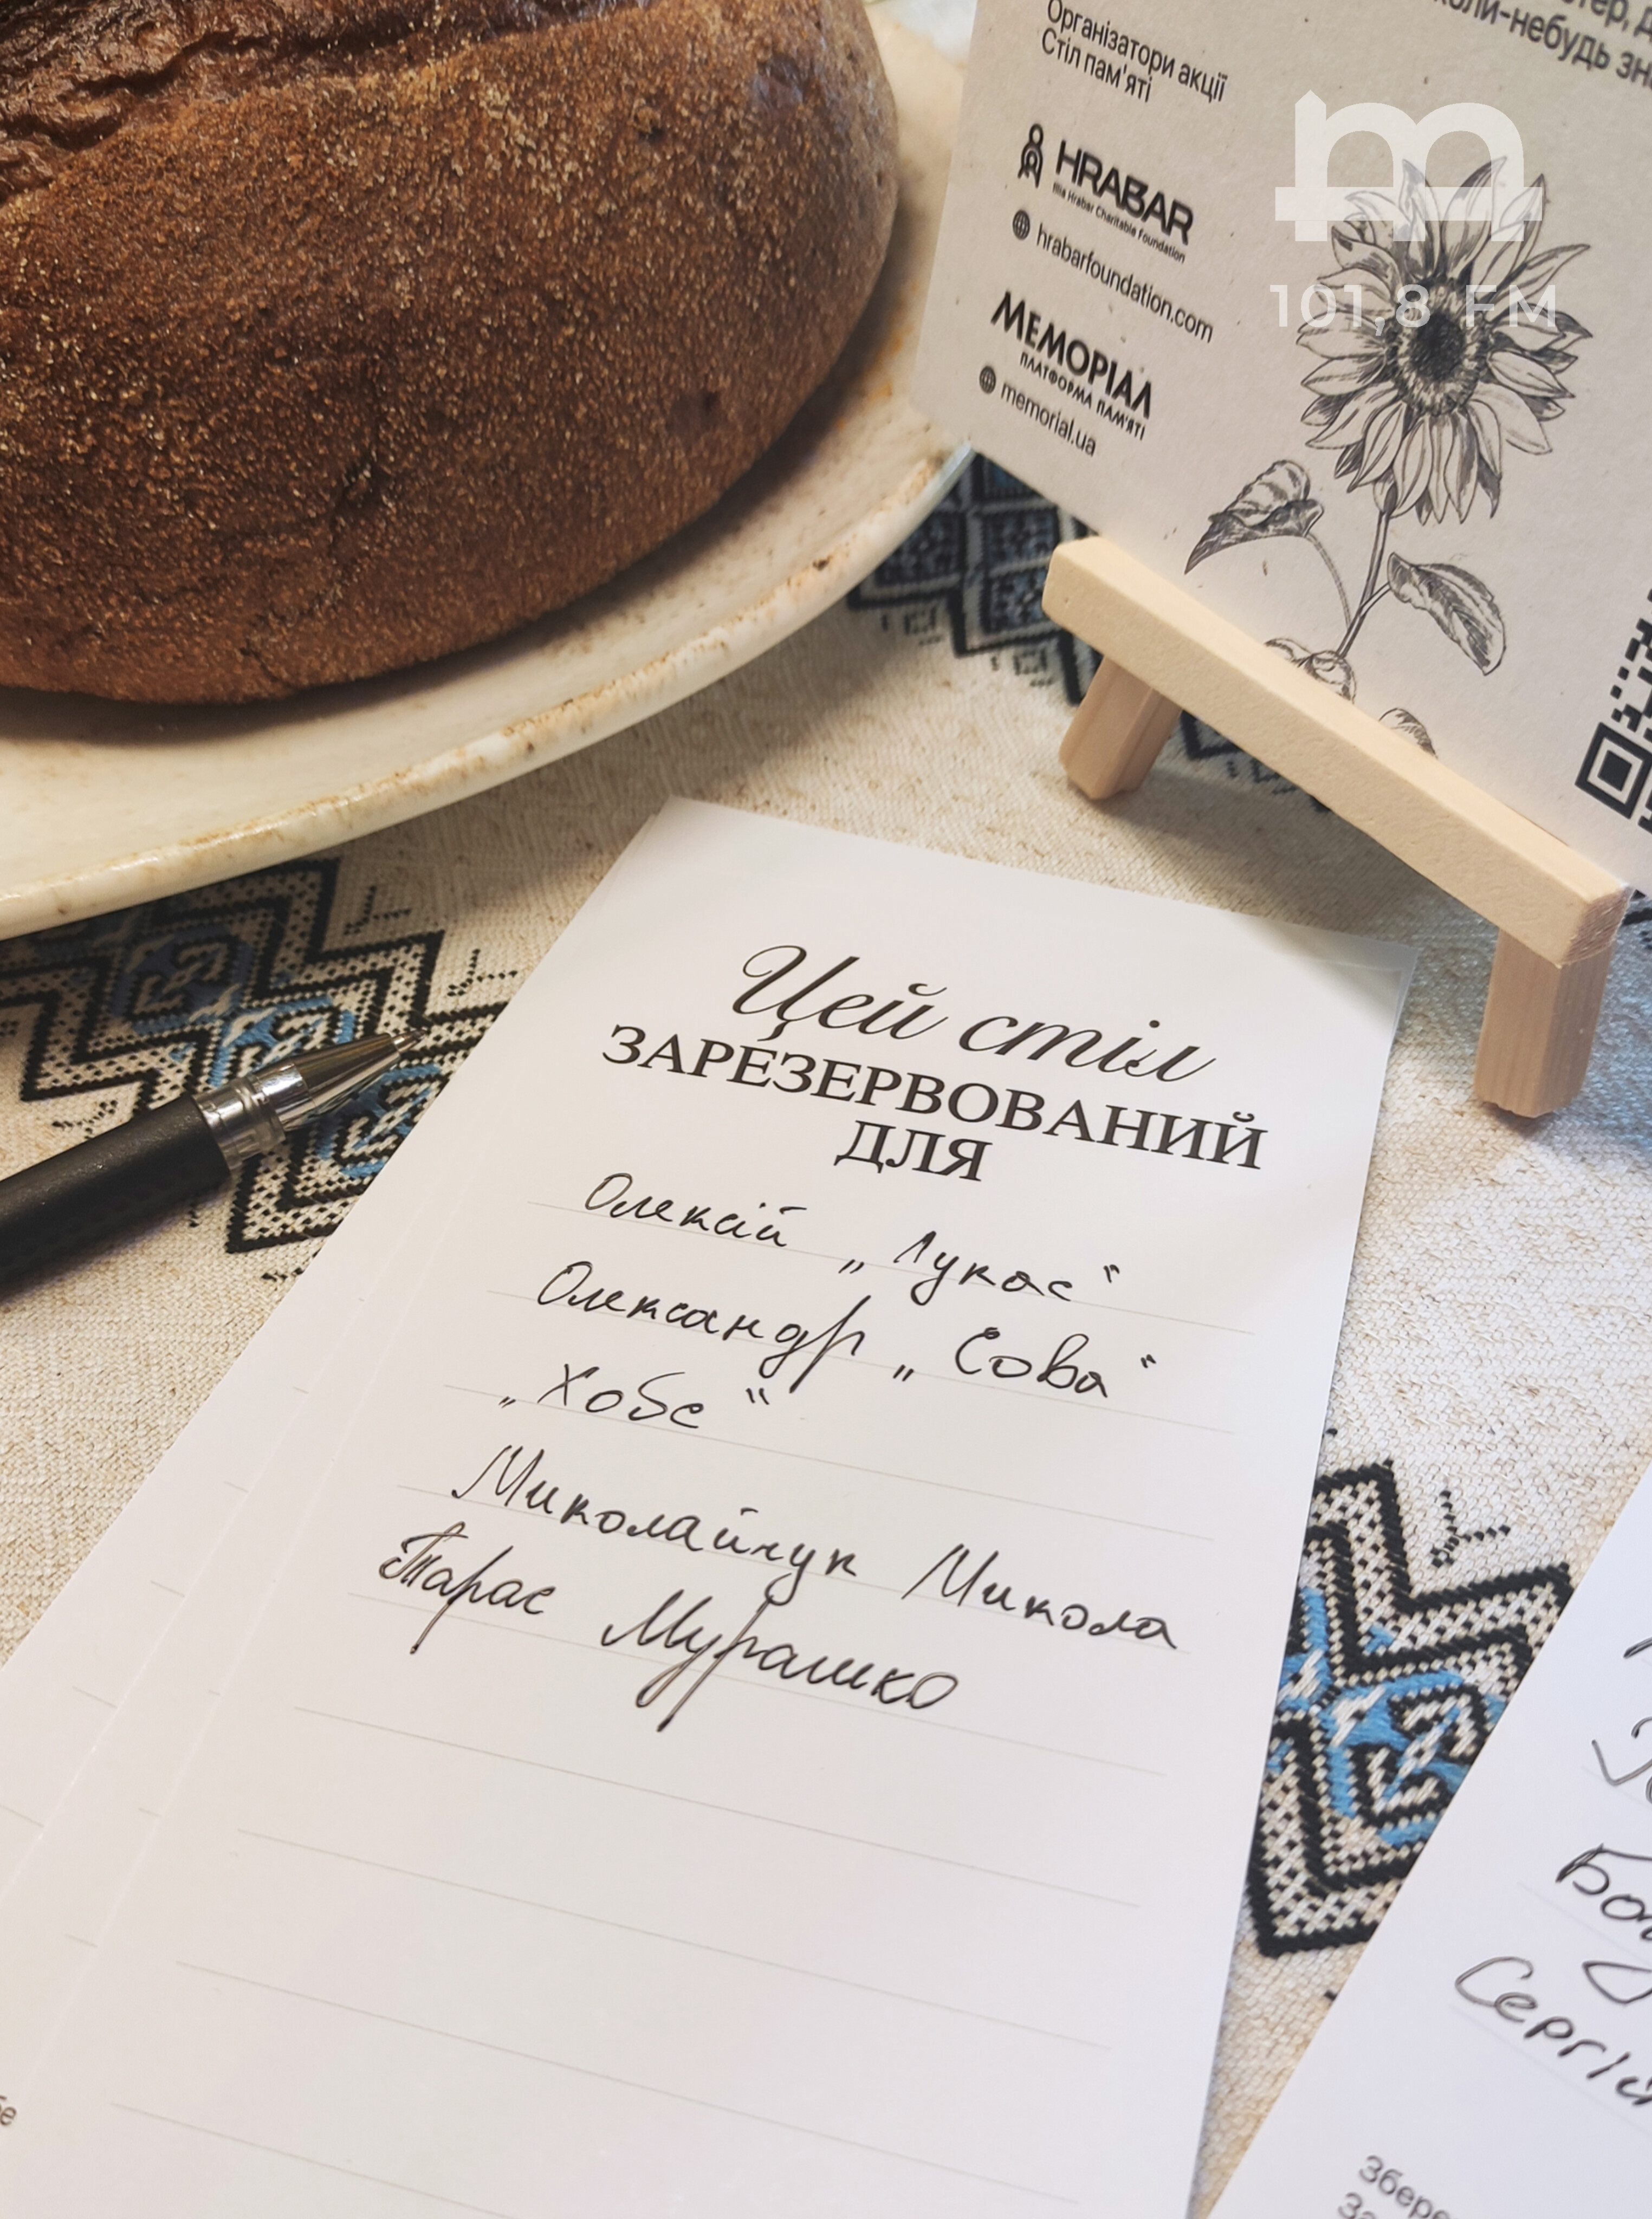 Організатори акції
Стіл пам'яті
HRABAR
Illia Hrabar Charitable Foundation
hrabarfoundation.com
МЕМОРІАЛ
ПЛАТФОРМА ПАМ'ЯТІ
memorial.ua
101,8 FM
Цей стіл
ЗАРЕЗЕРВОВАНИЙ
ДЛЯ
Олексій „Лукас“
Олександр „Сова“
„Хобс“
Миколайчук Микола
Тарас Мурашко